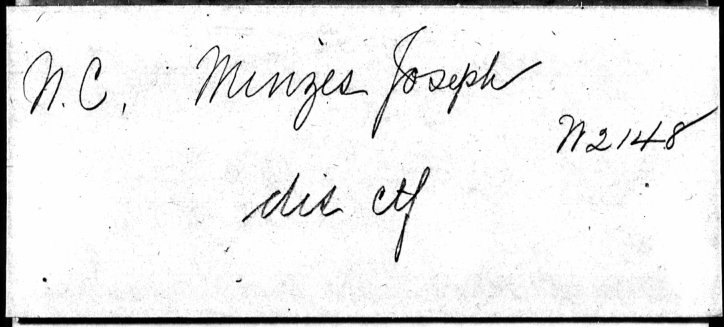 N.C. Minzes Joseph
W2148
dis ctf